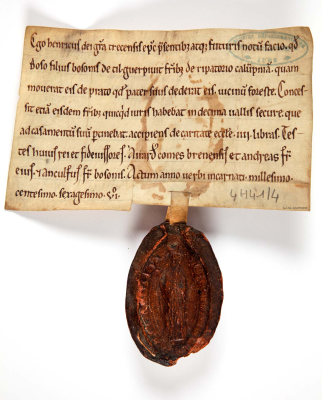 Ego henricus dei gr̃a trecensis ep̃c p̃sentib; atq; futuris notũ facio. qđ
boso filius bosonis de til guerpiuit fr̃ib; de ripatorio calũpniã. quam
mouerat eis de prato qđ pater suus dederat eis. uicinũ foreste. Conces
sit etiã eisdem fr̃ib; quicqđ iuris habebat in decima uallis secure. que
ad casamentũ suũ pertinebat. accipiens de caritate eccl̃e .iiij. libras. Tes
tes huius rei et fideiussores. Airardꝰ comes brenensis et andreas fr̃
eius. et anculfus fr̃ bosonis. Actum anno uerbi incarnati. millesimo
centesimo. sexagesimo. vi.
4441/4